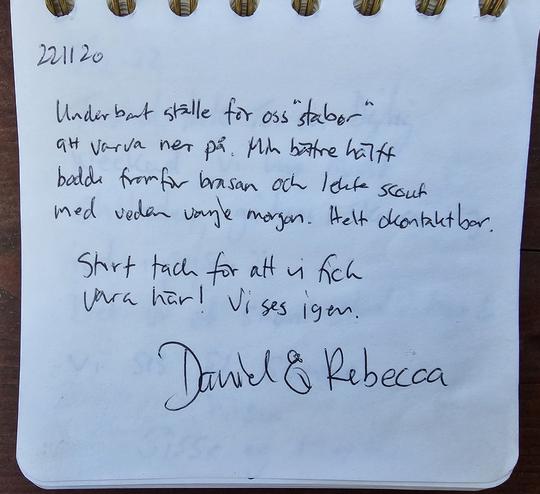 221120
Underbart ställe för oss "stabor"
att varva ner på. Min bättre hälft
bodde framför brasan och lekte scout
med veden varje morgon. Helt okontaktbar.
Stort tack för att vi fick
vara här! Vi ses igen.
Daniel & Rebecca